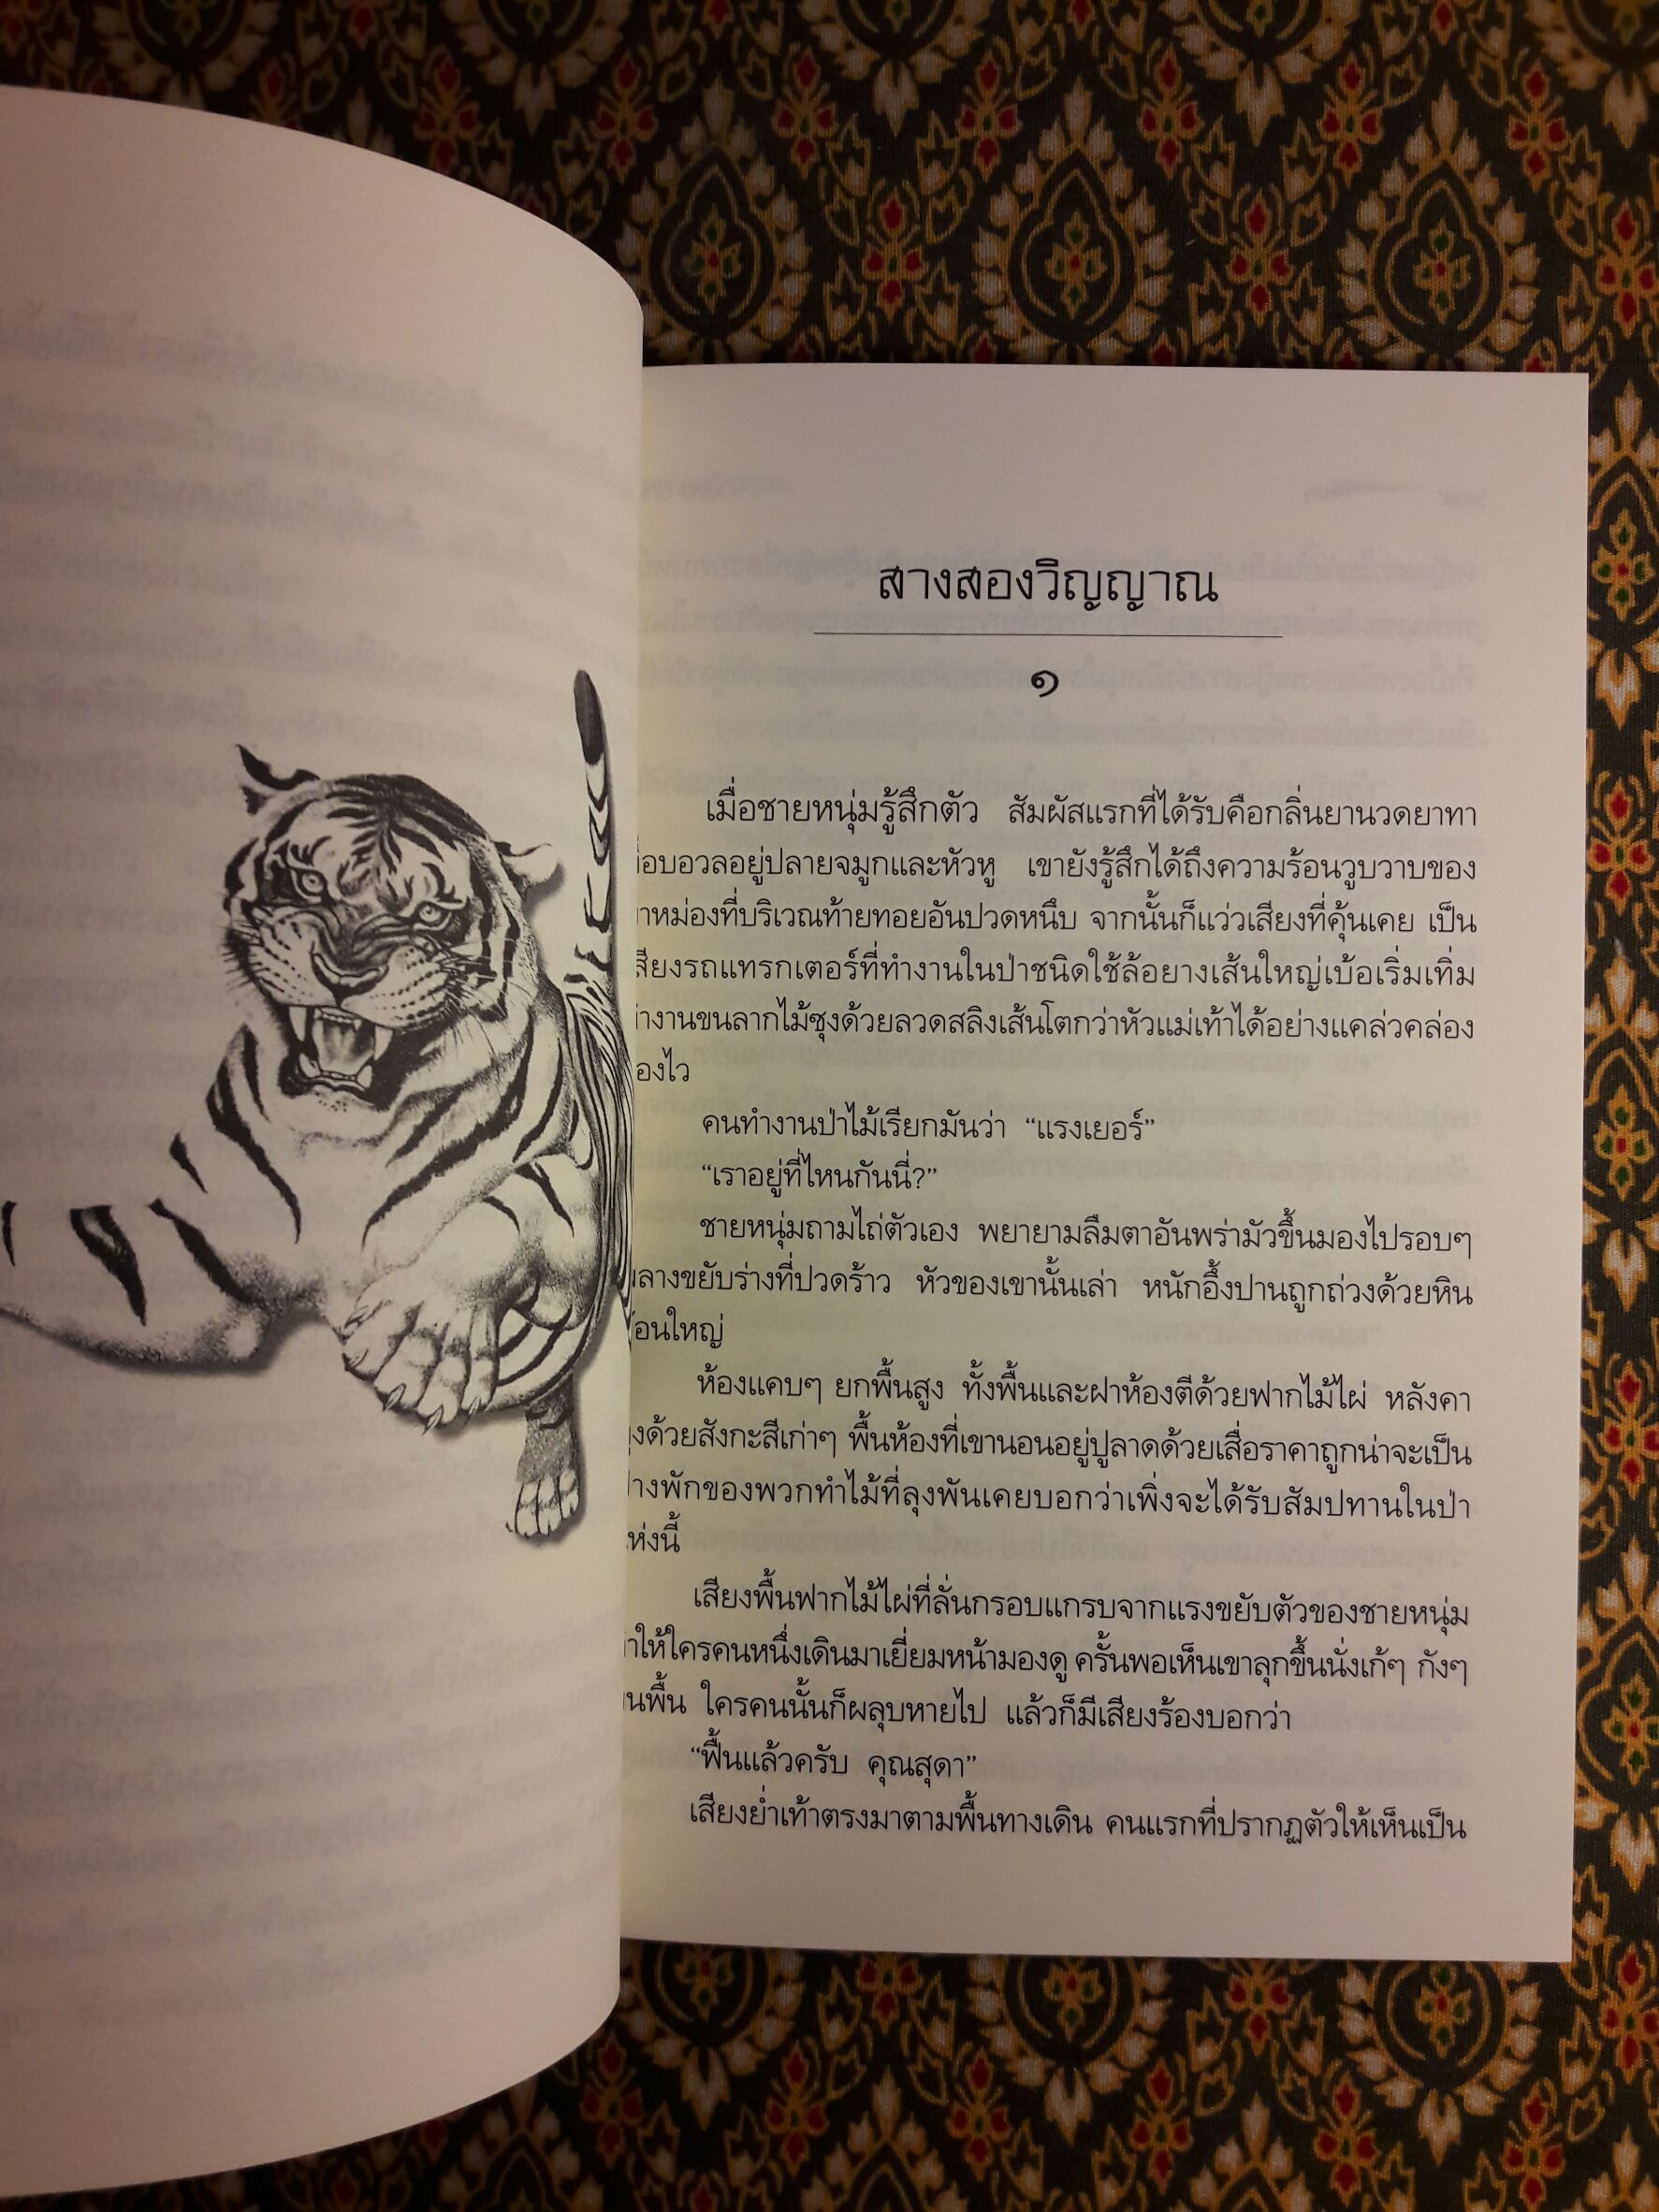 สางสองวิญญาณ
๑
เมื่อชายหนุ่มรู้สึกตัว สัมผัสแรกที่ได้รับคือกลิ่นยานวดยาทา
อบอวลอยู่ปลายจมูกและหัวหู เขายังรู้สึกได้ถึงความร้อนวูบวาบของ
หม่องที่บริเวณท้ายทอยอันปวดหนึบ จากนั้นก็แว่วเสียงที่คุ้นเคย เป็น
สียงรถแทรกเตอร์ที่ทำงานในป่าชนิดใช้ล้อยางเส้นใหญ่เบ้อเริ่มเทิ่ม
งานขนลากไม้ซุงด้วยลวดสลิงเส้นโตกว่าหัวแม่เท้าได้อย่างแคล่วคล่อง
องไว
คนทำงานป่าไม้เรียกมันว่า “แรงเยอร์”
“เราอยู่ที่ไหนกันนี่?”
ชายหนุ่มถามไถ่ตัวเอง พยายามลืมตาอันพร่ามัวขึ้นมองไปรอบๆ
ลางขยับร่างที่ปวดร้าว หัวของเขานั้นเล่า หนักอึ้งปานถูกถ่วงด้วยหิน
อนใหญ่
ห้องแคบๆ ยกพื้นสูง ทั้งพื้นและฝาห้องตีด้วยฟากไม้ไผ่ หลังคา
งด้วยสังกะสีเก่าๆ พื้นห้องที่เขานอนอยู่ปูลาดด้วยเสื่อราคาถูกน่าจะเป็น
างพักของพวกทำไม้ที่ลุงพันเคยบอกว่าเพิ่งจะได้รับสัมปทานในป่า
ห่งนี้
เสียงพื้นฟากไม้ไผ่ที่ลั่นกรอบแกรบจากแรงขยับตัวของชายหนุ่ม
ให้ใครคนหนึ่งเดินมาเยี่ยมหน้ามองดู ครั้นพอเห็นเขาลุกขึ้นนั่งเก้ๆ กังๆ
นพื้น ใครคนนั้นก็ผลุบหายไป แล้วก็มีเสียงร้องบอกว่า
“ฟื้นแล้วครับ คุณสุดา”
เสียงย่ำเท้าตรงมาตามพื้นทางเดิน คนแรกที่ปรากฏตัวให้เห็นเป็น